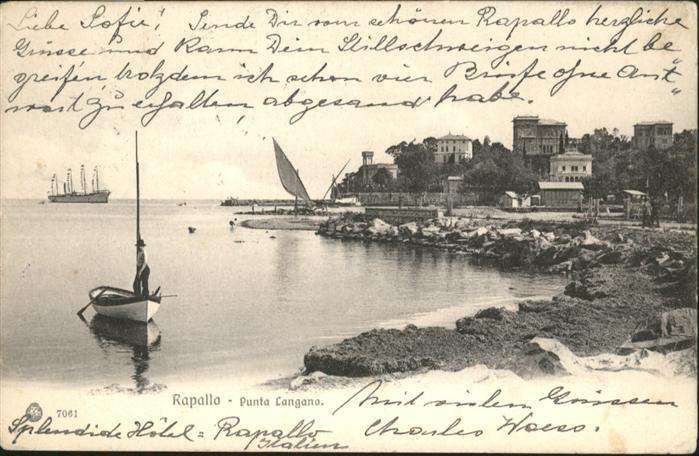 Liebe Sofie! Sende Dir vom schönen Rapallo herzliche
Grüsse und kann Dein Stillschweigen nicht be
greifen, trotzdem ich schon vier Briefe ohne Ant"
wort zu erhalten, abgesand habe.
Rapallo - Punta Langano.
7061
Mit vielen Grüssen
Splendide Hôtel = Rapallo
Italien
Charles